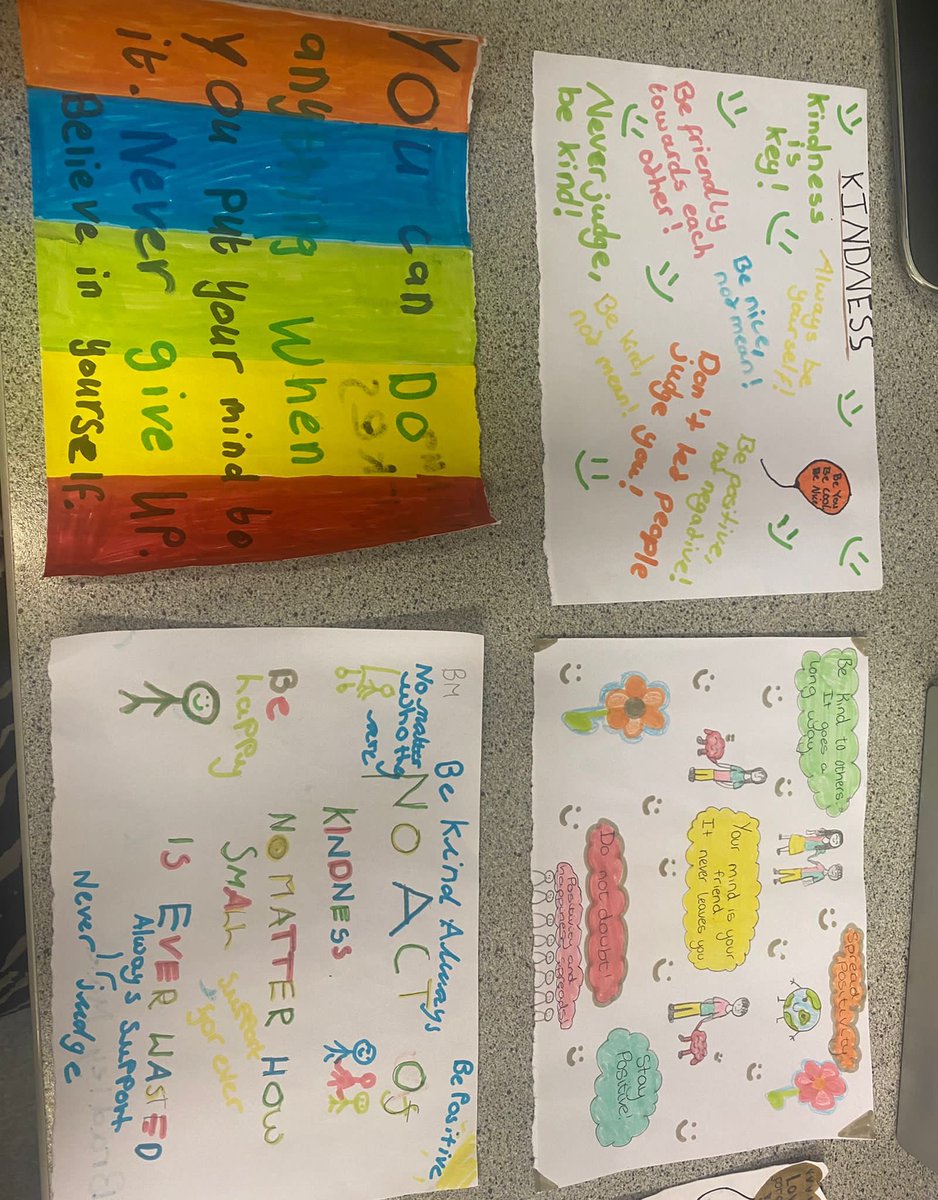 KINDNESS
Kindness
is
key!
Always be
yourself!
Be You
Be Cool
Be Nice
Be friendly
towards each
other!
Be nice,
not mean!
Be positive,
not negative!
Never judge,
be kind!
Don't let people
judge you!
Be kind,
not mean!
You can Do
anything When
you put your mind to
it. Never give up.
Believe in yourself.
Be kind to others.
It goes a
long way.
Spread
Positivity
Your mind is your
friend
It never leaves you
Do not doubt!
Positivity and
happiness spreads!
Stay
Positive!
BM
Be Kind Always
Be Positive
No matter
who they
are
NO ACT Of
KINDNESS
Be
happy
NO MATTER HOW
SMALL
support
for ever
IS EVER WASTED
Always support
Never judge